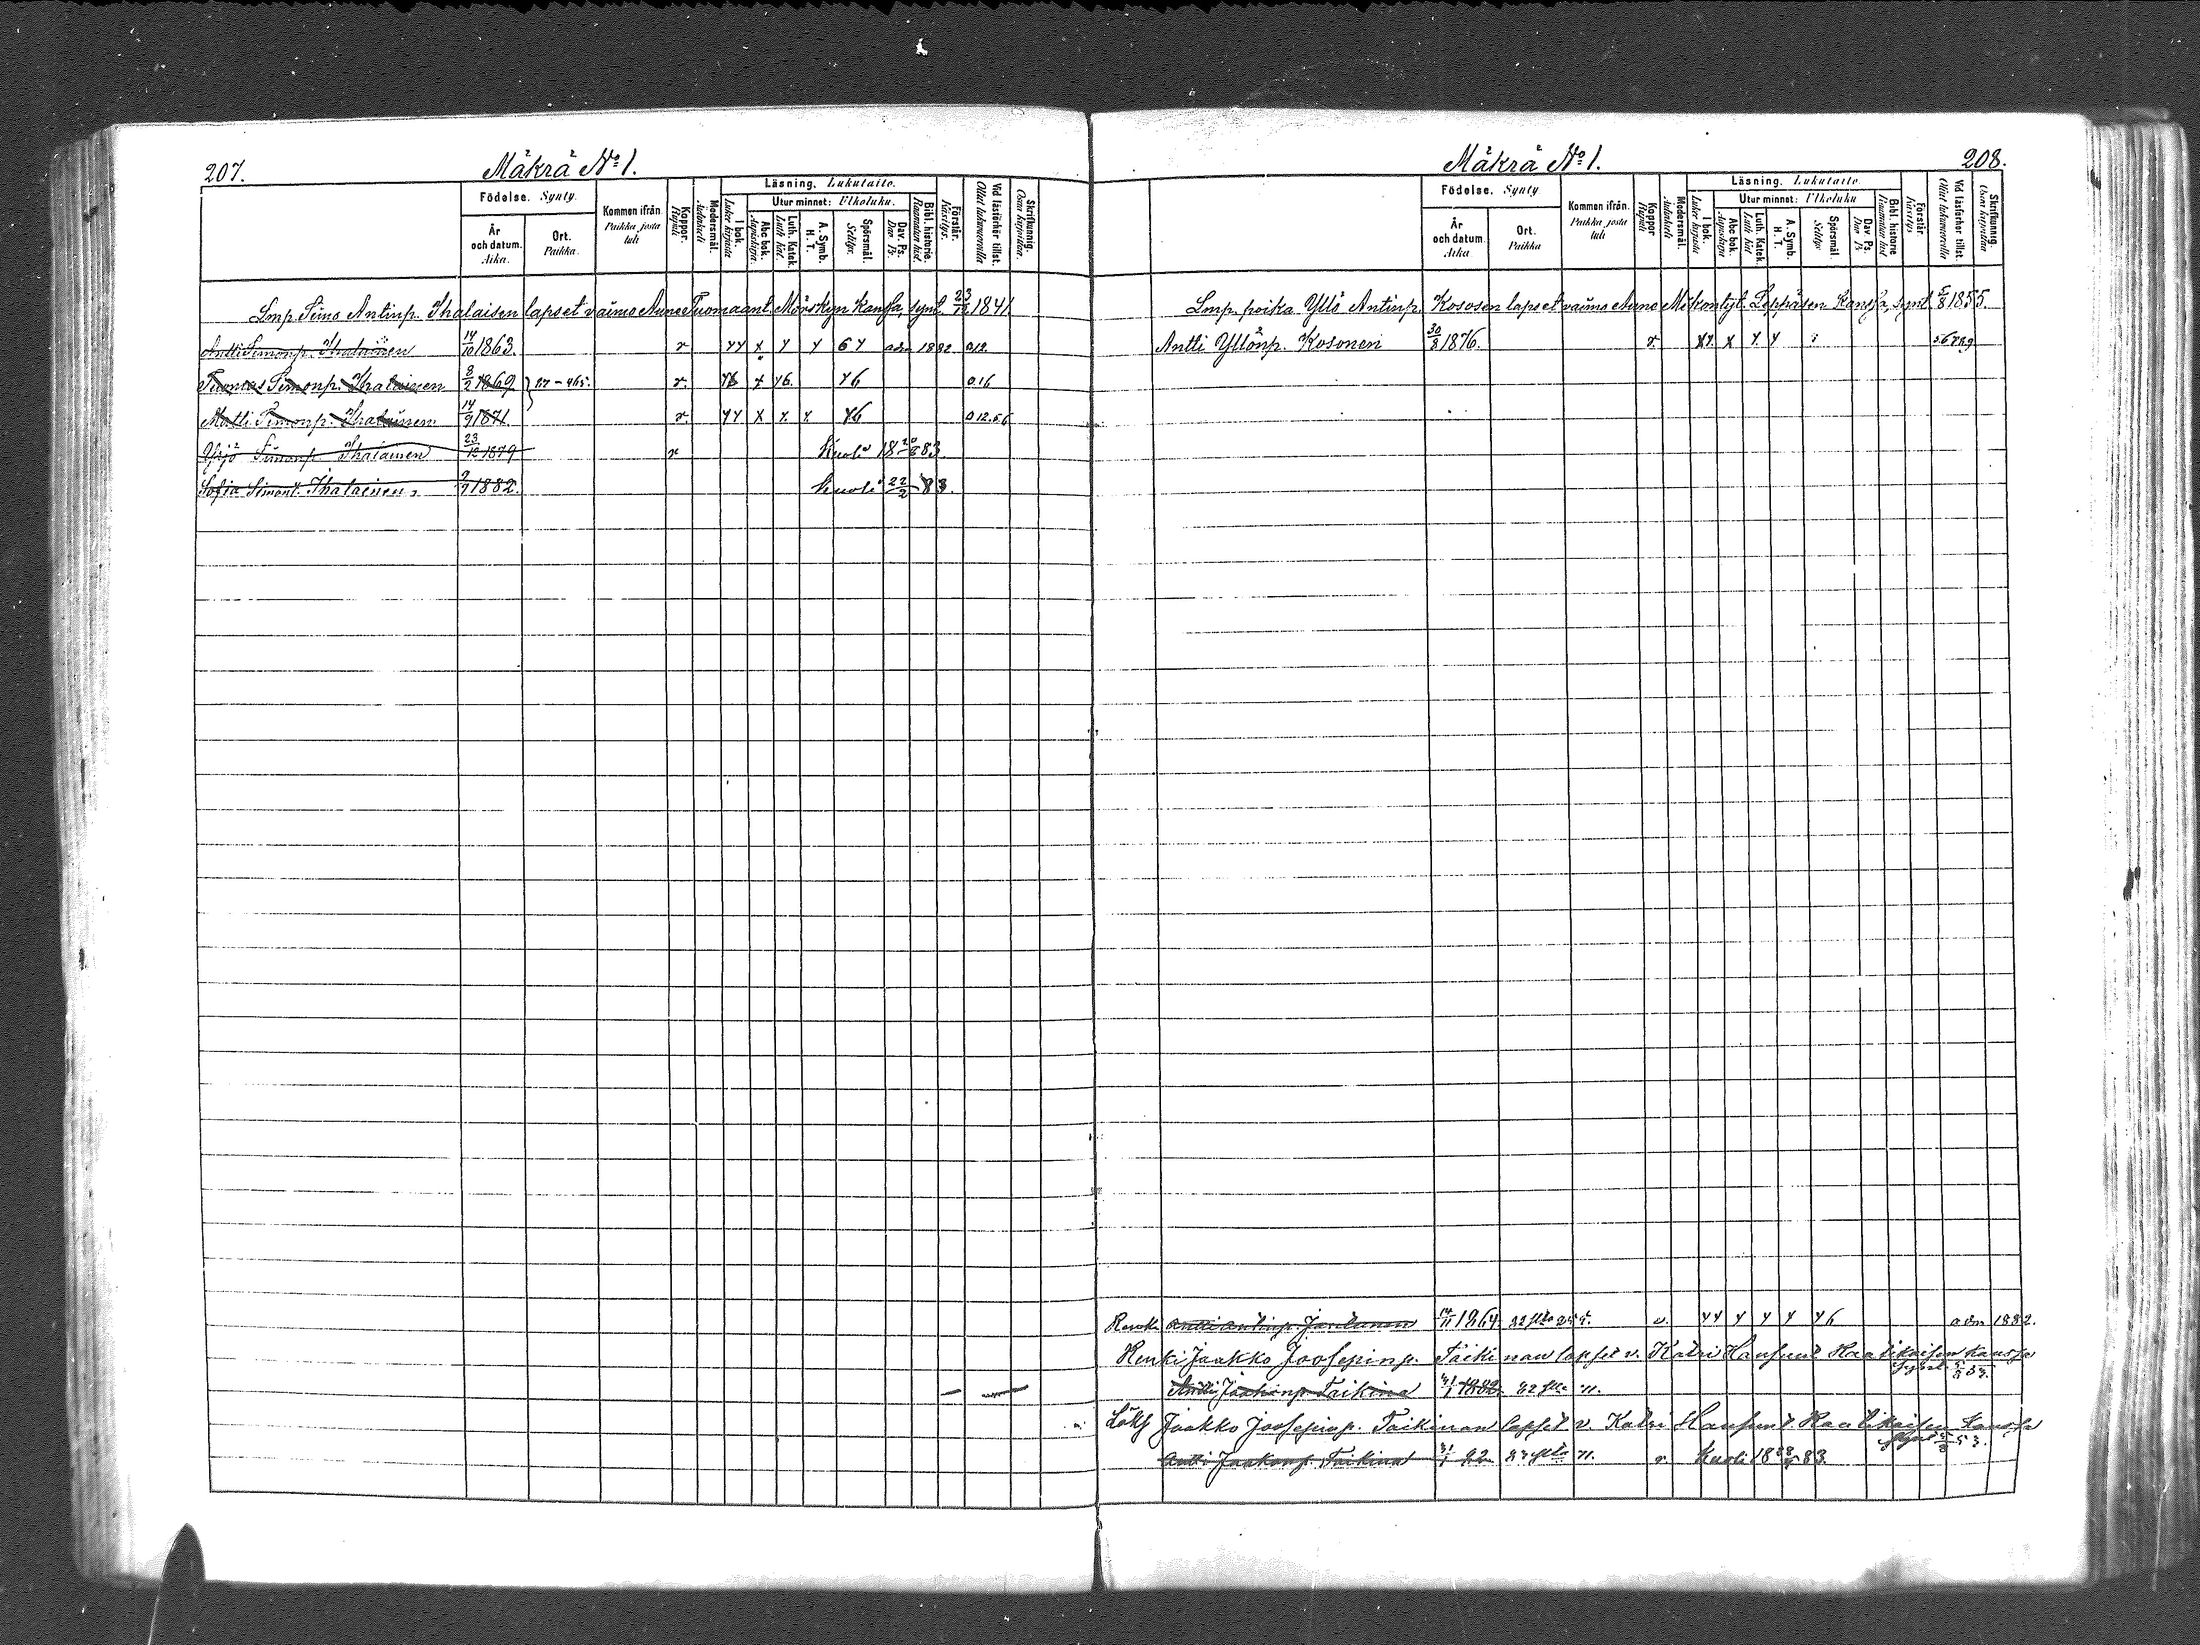 207.
Mäkrä No 1.
Födelse. Synty.
År och datum. Aika.
Ort. Paikka.
Kommen ifrån. Paikka josta tuli
Koppor. Rupuli
Modersmål. Äidinkieli
Läsning. Lukutaito.
Utur minnet: Ulkoluku.
I bok. Lukee kirjasta
Abc bok. Aapiskirja
Luth. Katek. Luth. kat.
A. Symb. H. T.
Spörsmål. Selitys.
Dav. Ps. Dav. Ps.
Bibl. historie. Raamatun hist.
Förstår. Käsitys.
Vid läsförhör tillst. Ollut lukuvuoroilla
Skrifkunnig. Osaa kirjoittaa.
Lmp. Simo Antinp. Ihalaisen lapset vaimo Anna Tuomaant. Mörskyn kanssa, synt. 23/12 1841
Antti Simonp. Ihalainen 14/10 1863. r YY X Y Y 6Y adm 1882 012.
Tuomas Simonp. Ihalainen 8/2 1869 27-465. r. Y6 X Y6. Y6 016
Matti Simonp. Ihalainen 14/9 1871. r. YY X Y. Y. Y6 012.56
Yrjö Simonp. Ihalainen 23/12 1879 r Kuoli 18 20/6 83
Sofia Simont. Ihalainen 9/9 1882. Kuoli 22/2 83.
Mäkrä No 1.
208.
Födelse. Synty
År och datum. Aika
Ort. Paikka
Kommen ifrån. Paikka josta tuli
Koppor Rupuli
Modersmål. Äidinkieli
Läsning. Lukutaito
Utur minnet: Ulkoluku
I bok. Lukee kirjasta
Abc bok. Aapiskirja
Luth. Katek. Luth kat
A. Symb. H. T.
Spörsmål. Selitys
Dav Ps. Dav Ps.
Bibl. historie Raamatun hist
Förstår Käsitys
Vid läsförhör tillst. Ollut lukuvuoroilla
Skrifkunnig. Osaa kirjoittaa
Lmp. poika Yllö Antinp. Kososen lapset vaimo Anna Mikontyt. Leppäsen kanssa, synt. 5/8 1855.
Antti Yllönp. Kosonen 30/8 1876. r. XY. X Y Y 5 6 7 8 9
Renki Antti Antinp. 14/11 1864. v. YY Y Y Y Y6 adm 1882.
Renki Jaakko Joosepinp. Taikinan lapset v. Katri Hannunt Raatikaisen kanssa
synt. 5/8 53.
Antti Jaakonp. Taikina 31/1 1882. 82 n.
Jaakko Joosepinp. Taikinan lapset v. Katri Hannunt. Raatikaisen kanssa
synt. 5/8 53.
Antti Jaakonp. Taikina 31/1 82 n. r. Kuoli 83.